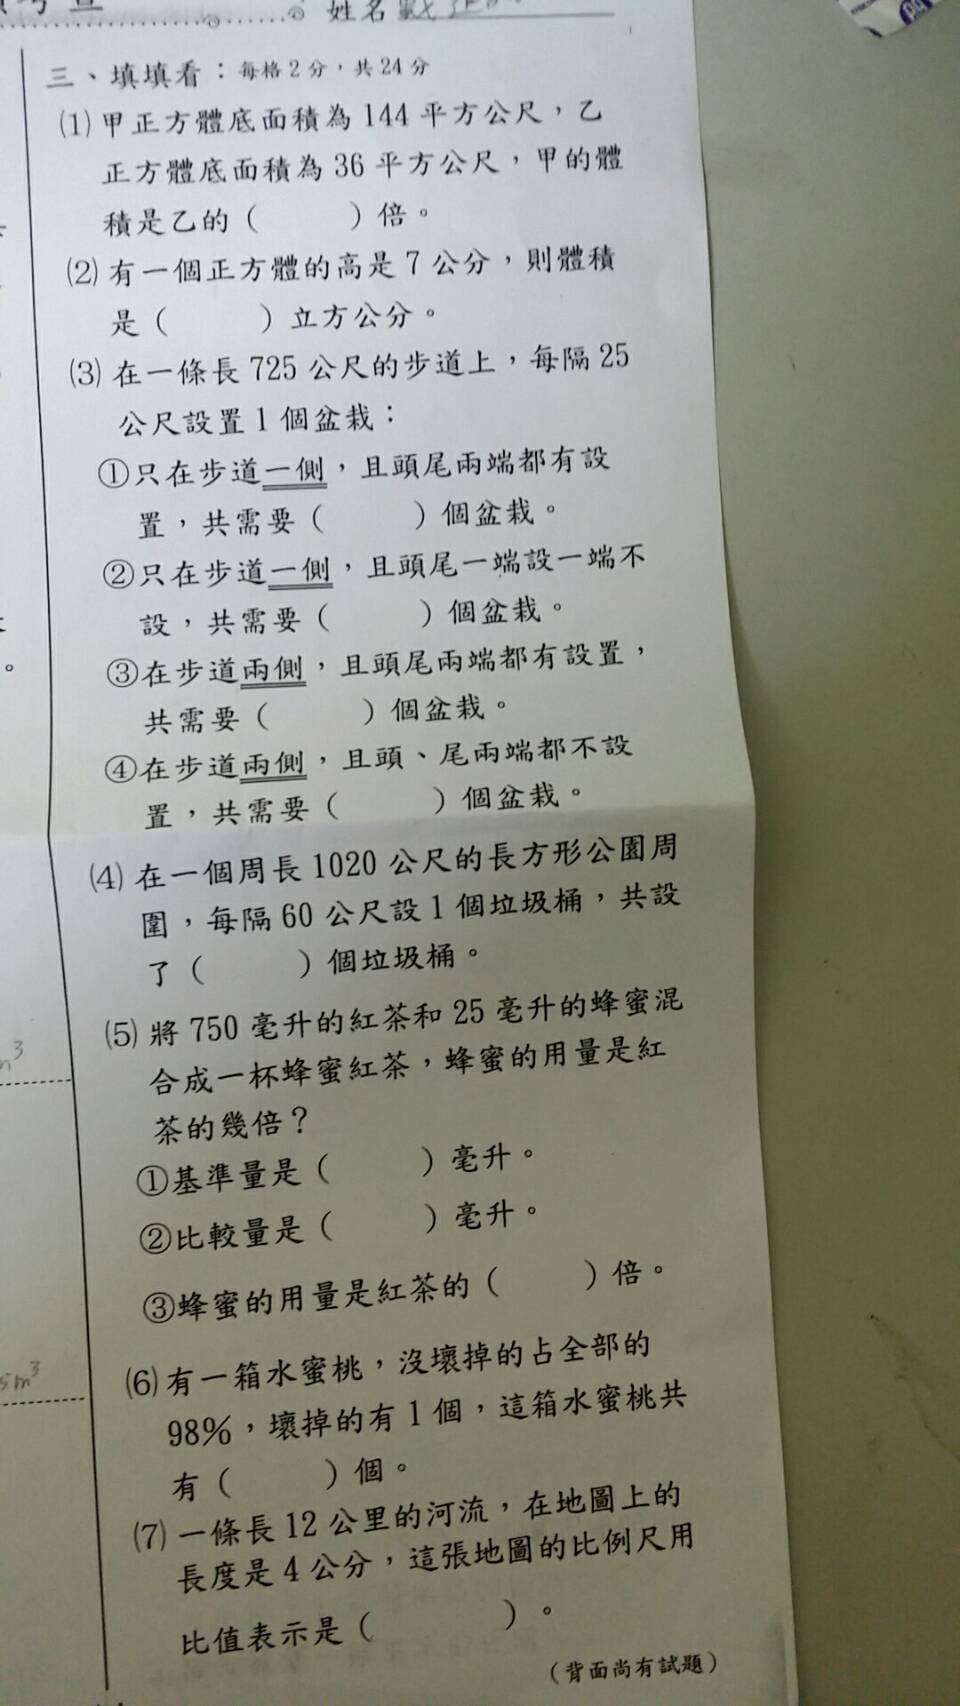 姓名
三、填填看：每格2分，共24分
⑴甲正方體底面積為144平方公尺，乙
正方體底面積為36平方公尺，甲的體
積是乙的（　　）倍。
⑵有一個正方體的高是7公分，則體積
是（　　）立方公分。
⑶在一條長725公尺的步道上，每隔25
公尺設置1個盆栽：
①只在步道一側，且頭尾兩端都有設
置，共需要（　　）個盆栽。
②只在步道一側，且頭尾一端設一端不
設，共需要（　　）個盆栽。
③在步道兩側，且頭尾兩端都有設置，
共需要（　　）個盆栽。
④在步道兩側，且頭、尾兩端都不設
置，共需要（　　）個盆栽。
⑷在一個周長1020公尺的長方形公園周
圍，每隔60公尺設1個垃圾桶，共設
了（　　）個垃圾桶。
⑸將750毫升的紅茶和25毫升的蜂蜜混
合成一杯蜂蜜紅茶，蜂蜜的用量是紅
茶的幾倍？
①基準量是（　　）毫升。
②比較量是（　　）毫升。
③蜂蜜的用量是紅茶的（　　）倍。
⑹有一箱水蜜桃，沒壞掉的占全部的
98%，壞掉的有1個，這箱水蜜桃共
有（　　）個。
⑺一條長12公里的河流，在地圖上的
長度是4公分，這張地圖的比例尺用
比值表示是（　　）。
（背面尚有試題）